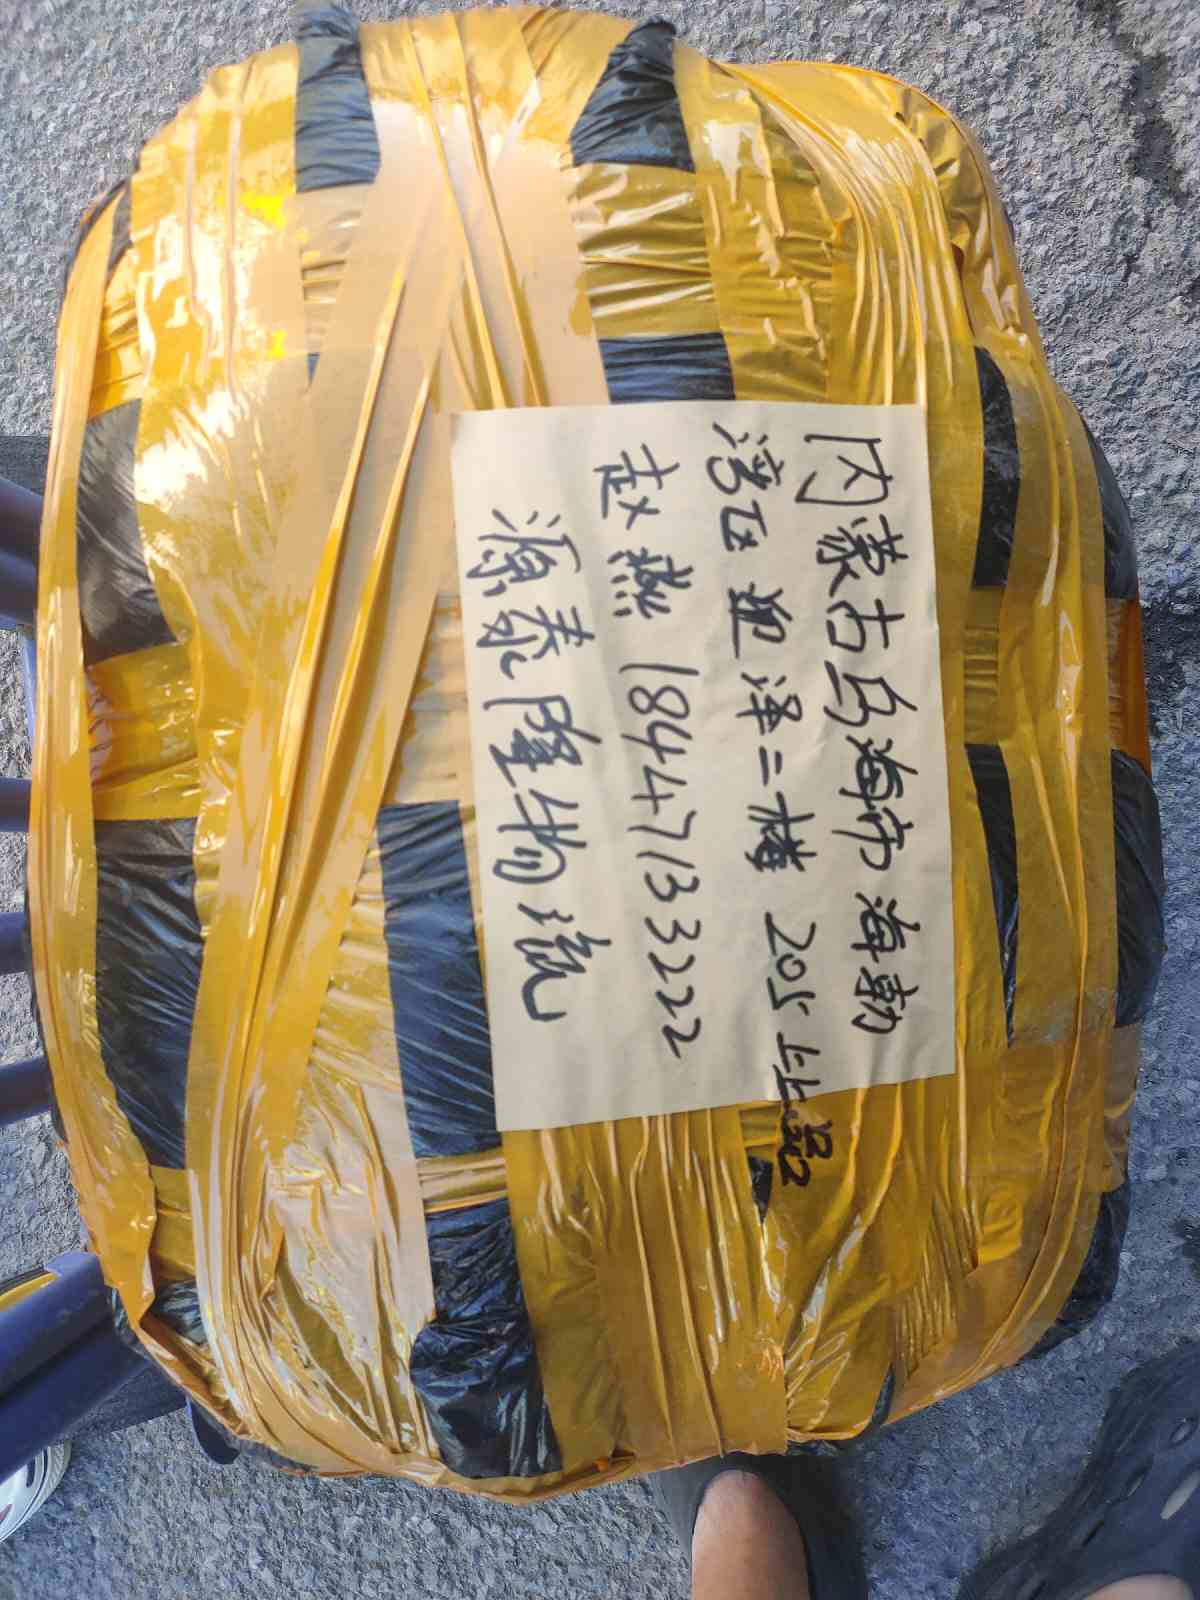 内蒙古乌海市海勃
湾区迎泽二横 205 土上路2
赵燕 18447133222
源泰隆物流